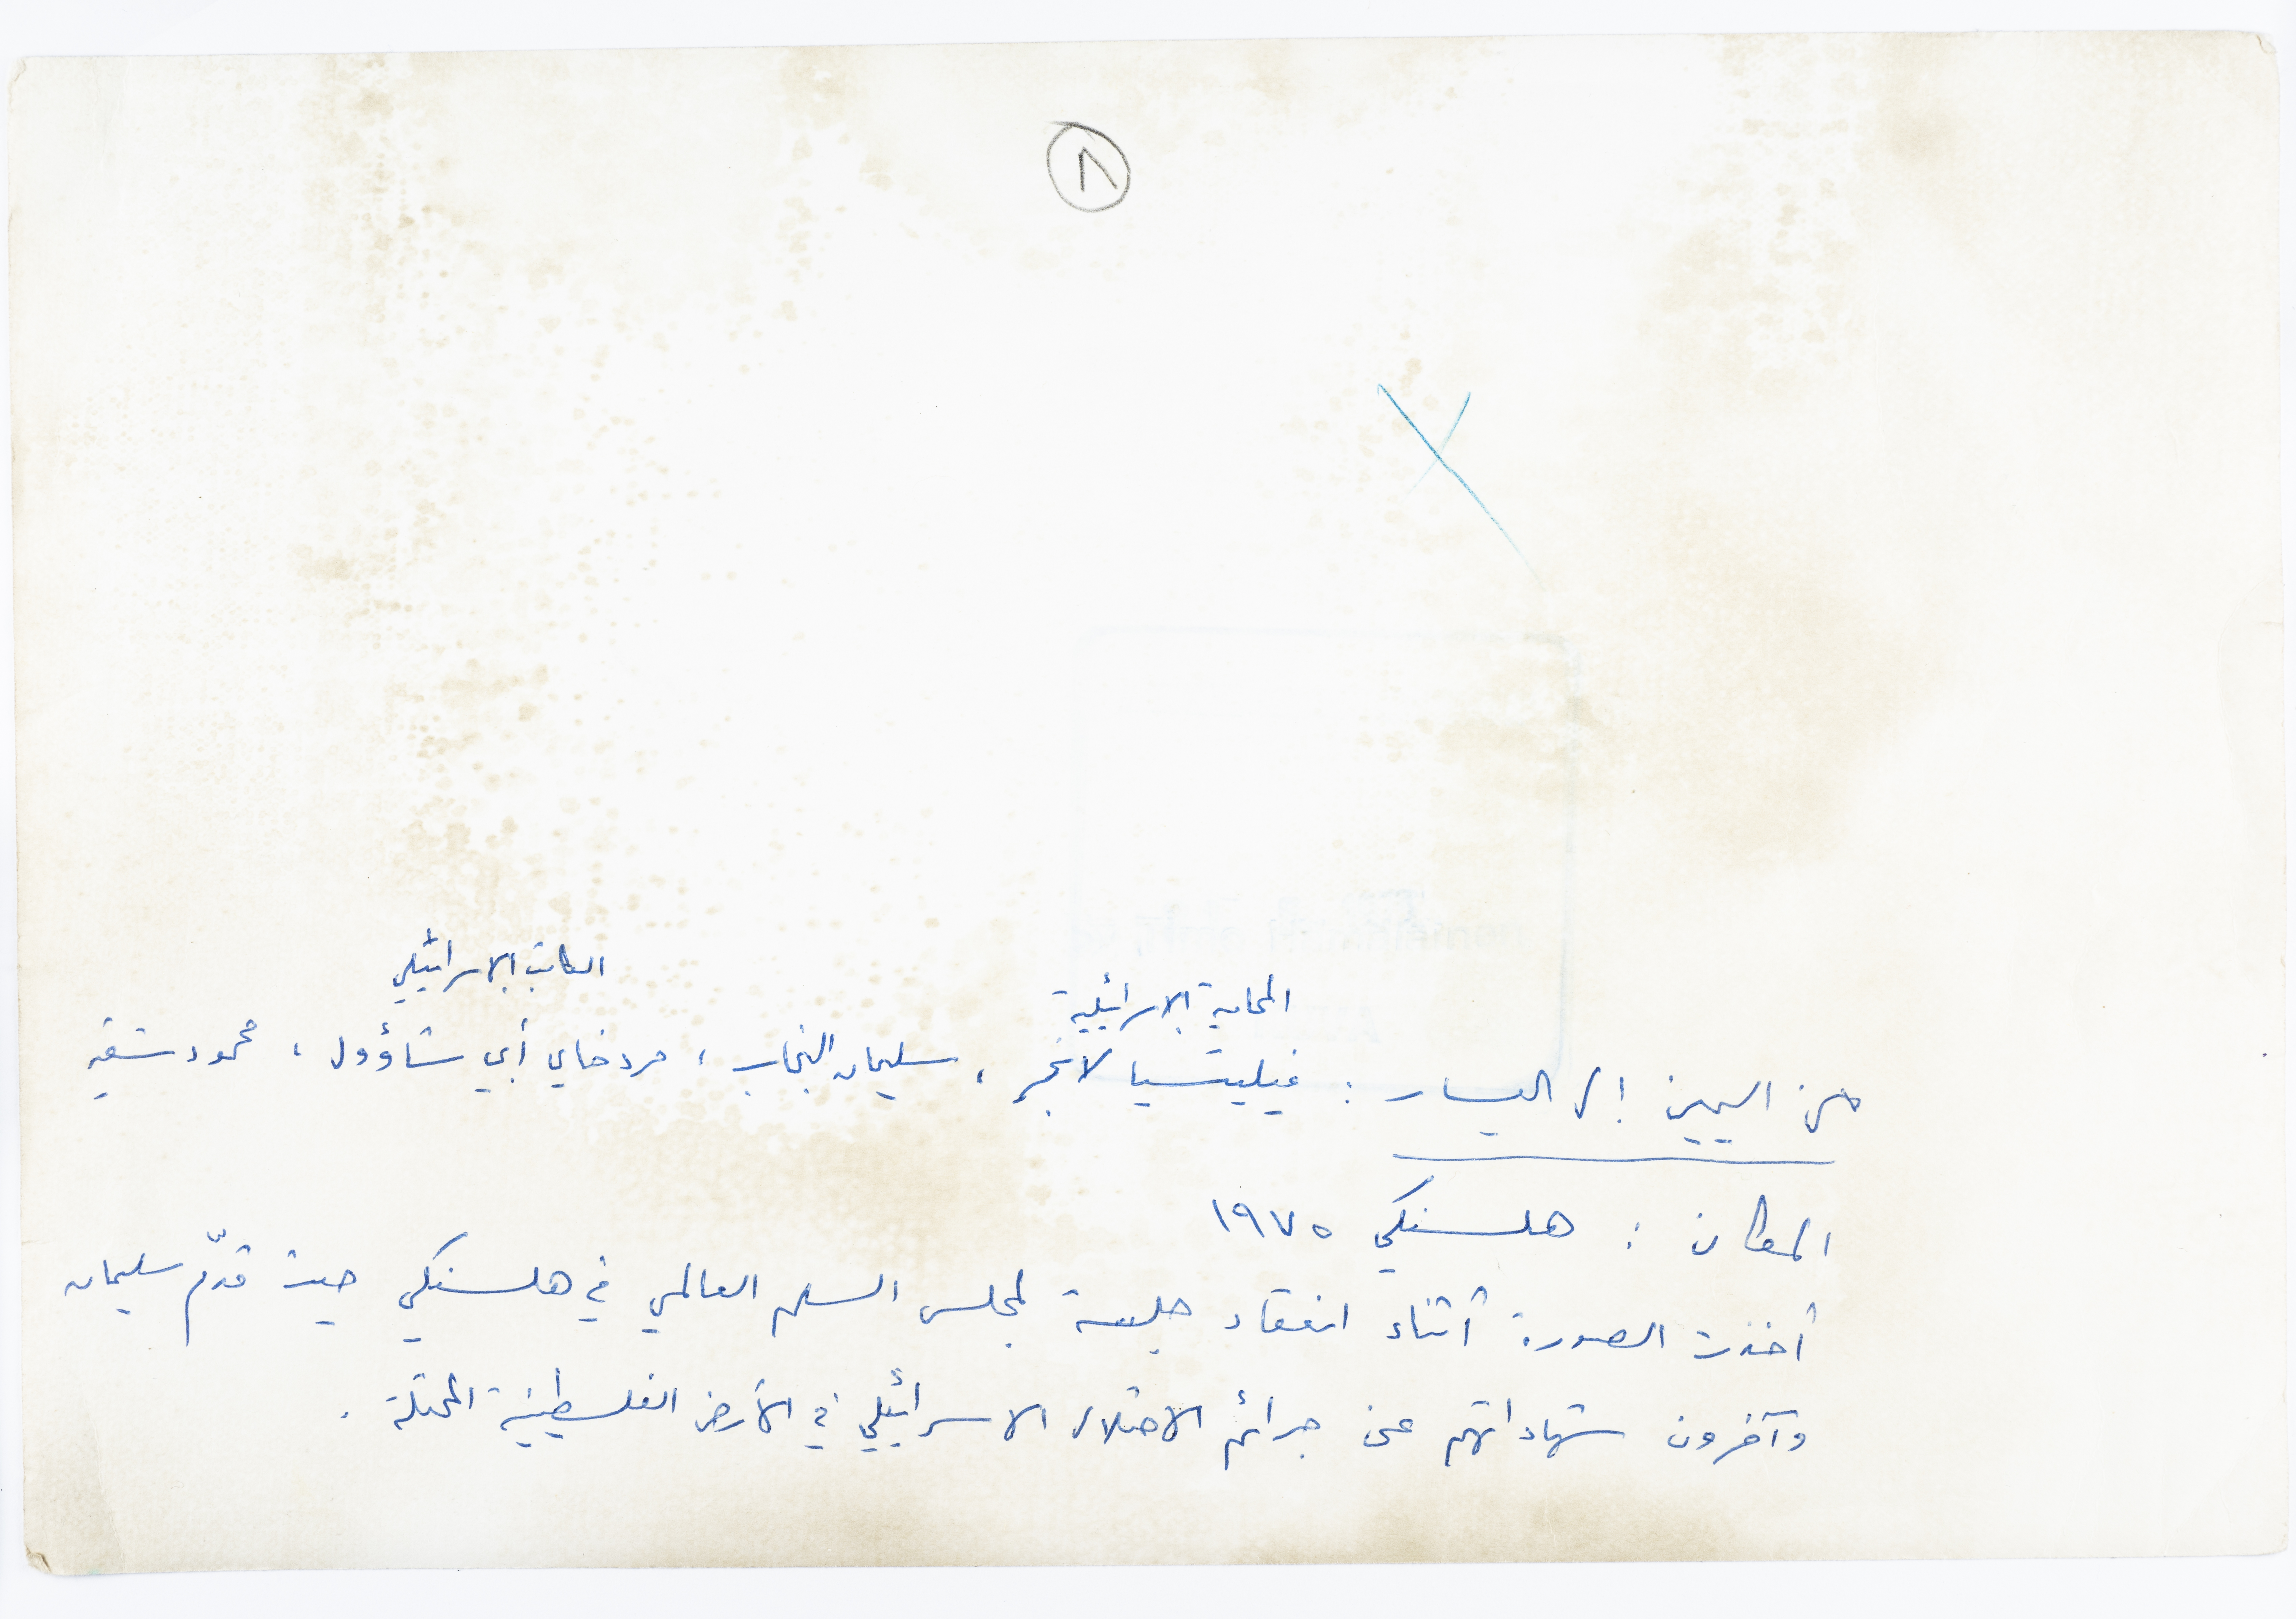 ٨
الكاتب الاسرائيلي
المحامية الاسرائيلية
من اليمين إلى اليسار : فيليتسيا لانجر ، سليمان النجاب ، مردخاي أبي شاؤول ، محمود شقير
المكان : هلسنكي ١٩٧٥
أخذت الصورة أثناء انعقاد جلسة لمجلس السلم العالمي في هلسنكي حيث قدّم سليمان
وآخرون شهاداتهم عن جرائم الاحتلال الاسرائيلي في الأرض الفلسطينية المحتلة .